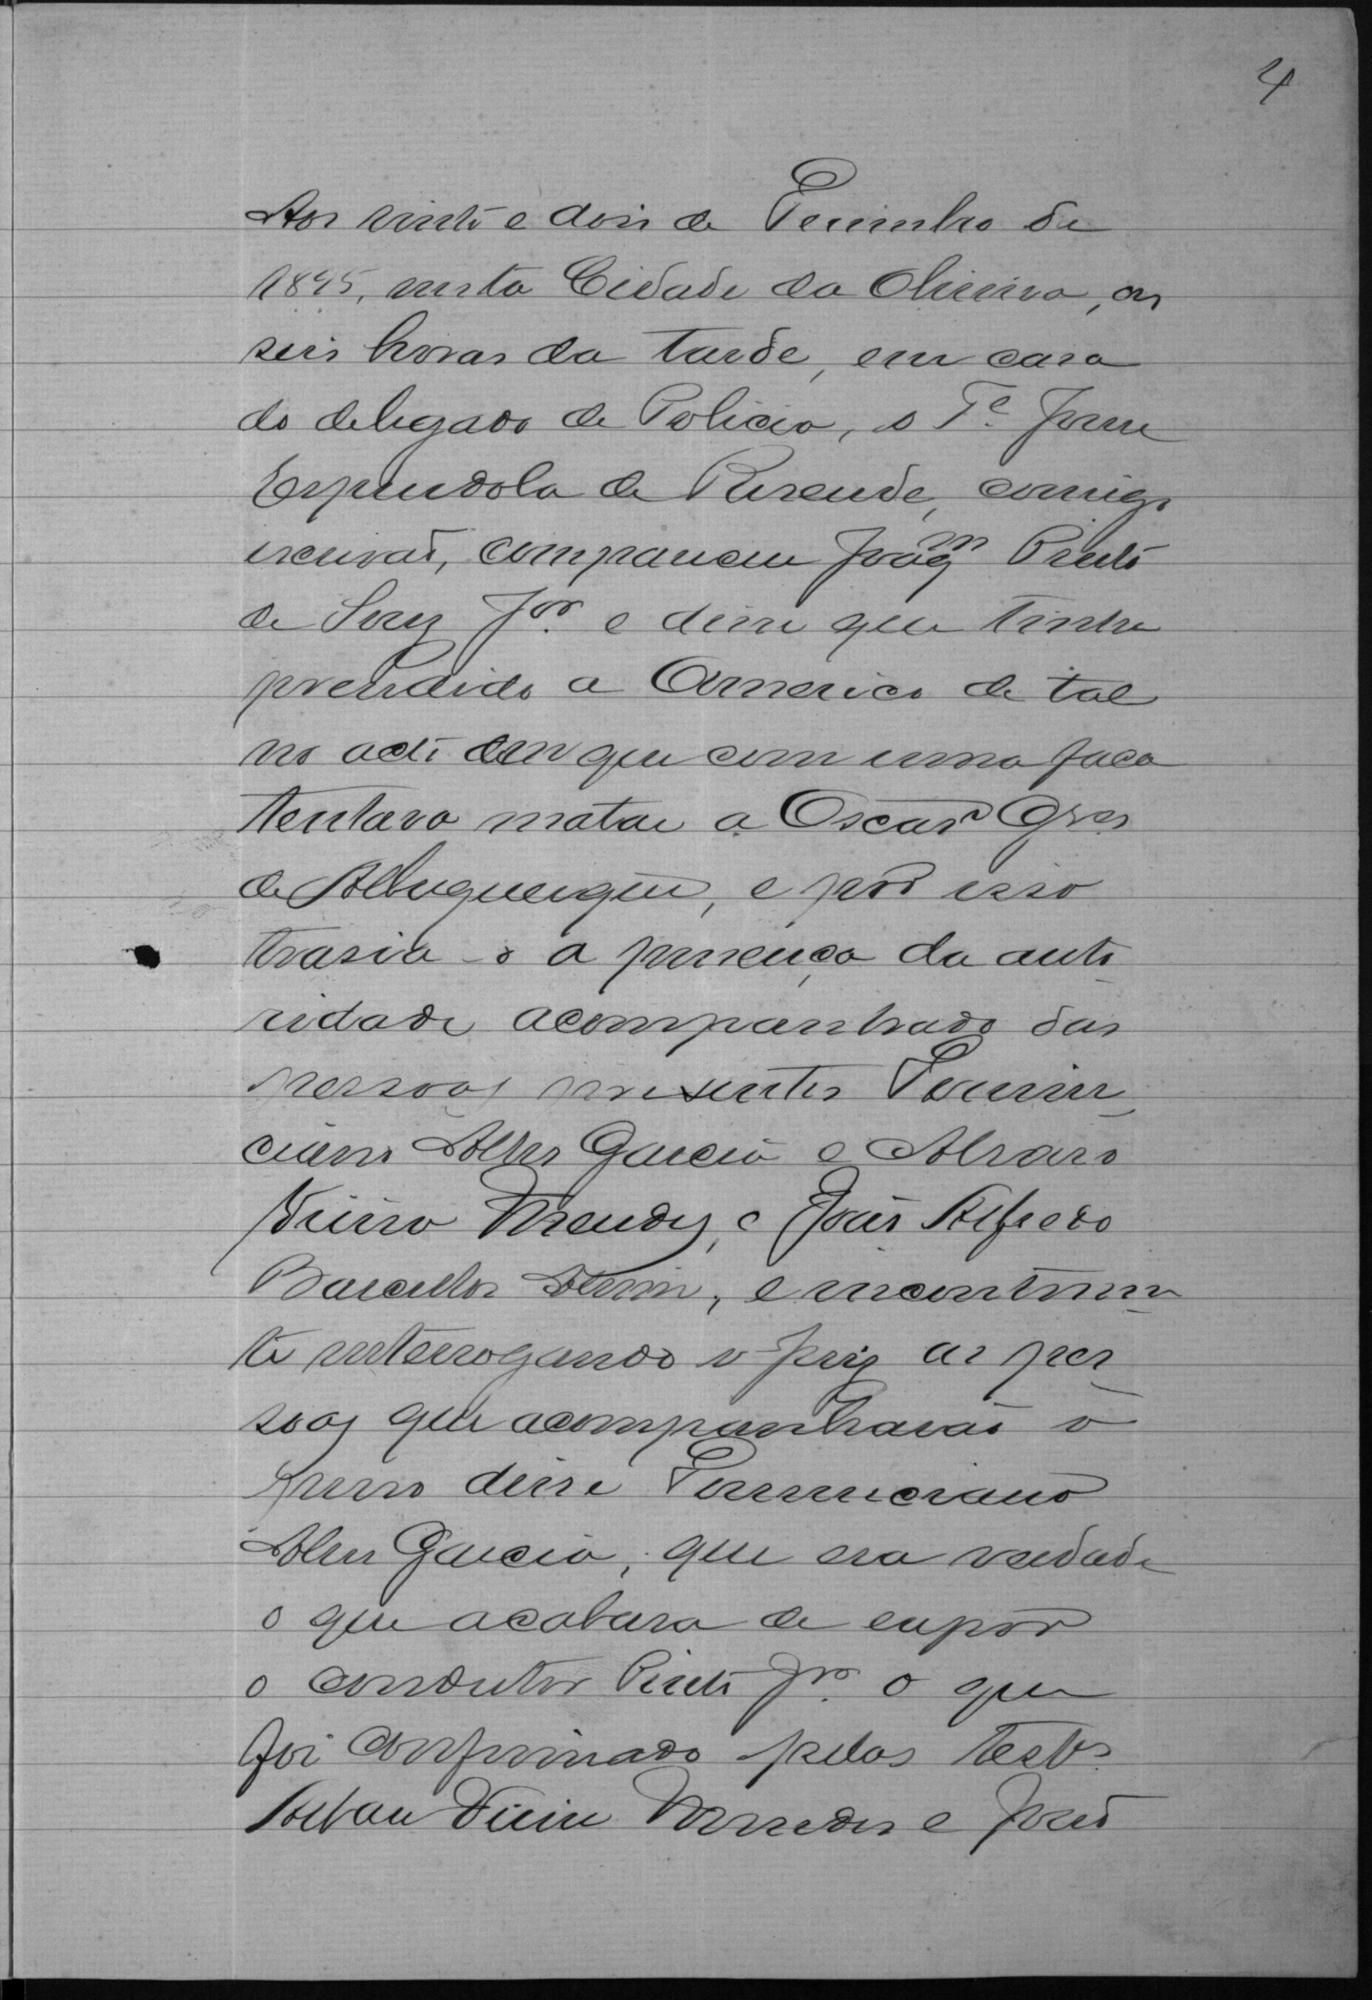 4
Aos vinte e dois de Fevereiro de
1895, nesta Cidade da Oliveira, as
seis horas da tarde, em casa
do delegado de Policia, o Te.
Espindola de Resende, comigo
escrivaõ, compareceu Joaqm Pinto
de Jor. e disse que tinha
prendido a Americo de tal
no acto em que com uma faca
tentava matar a Oscar
de Albuquerque, e por isso
trasia-o a presença da auto
ridade acompanhado das
pessoas presentes
ciano Alves Garcia e Alvaro
Vieira Mendes, e João Alfredo
Barcellos, e incontinen
te interrogando o juiz as pes
soas que acompanhavaõ o
preso disse
Alves Garcia, que era verdade
o que acabara de expor
o condutor Pinto Jor. o que
foi confirmado pelas testas.
Vieira Mendes e João